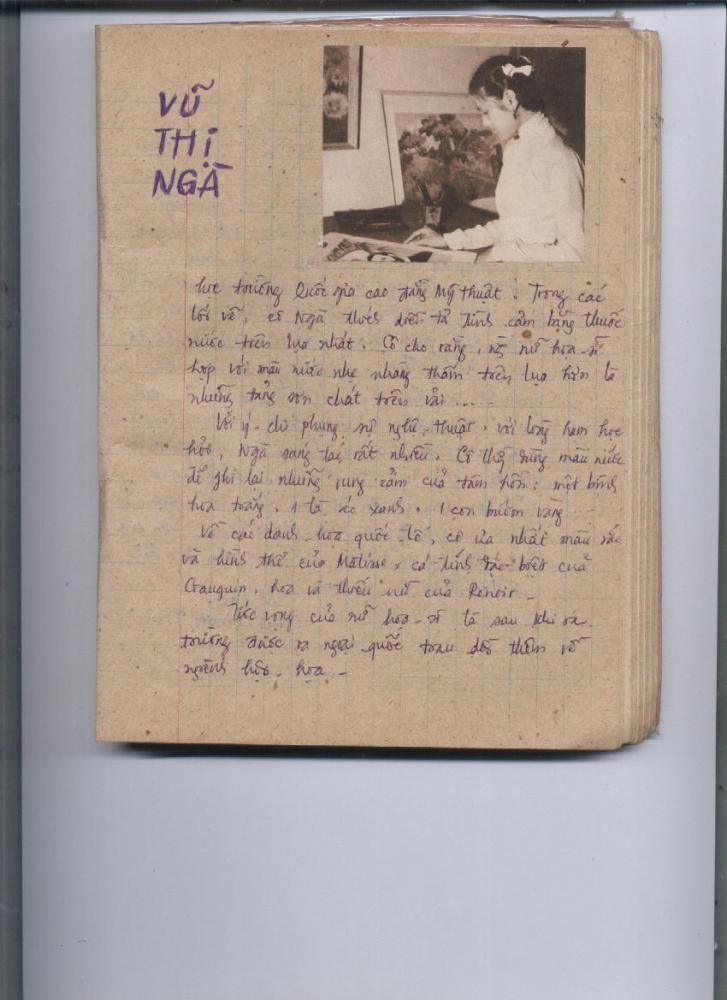 VŨ
THỊ
NGÀ
học trường Quốc gia cao đẳng Mỹ thuật. Trong các
lối vẽ, cô Ngà thích diễn tả tình cảm bằng thuốc
nước trên lụa nhất. Cô cho rằng, nữ họa-sĩ
hợp với màu nước nhẹ nhàng thấm trên lụa hơn là
những tảng sơn chất trên vải ....-
Với ý-chí phụng sự nghệ-thuật, với lòng ham học
hỏi, Ngà sáng tác rất nhiều. Cô thg dùng màu nước
để ghi lại những rung cảm của tâm hồn: một bình
hoa trắng, 1 tà áo xanh, 1 con bướm vàng...
Về các danh-họa quốc-tế, cô ưa nhất màu sắc
và hình thể của Matisse, cá tính đặc-biệt của
Gauguin, hoa và thiếu nữ của Renoir-
Ước vọng của nữ họa-sĩ là sau khi ra
trường được ra ngoại quốc trau dồi thêm về
ngành hội-họa-